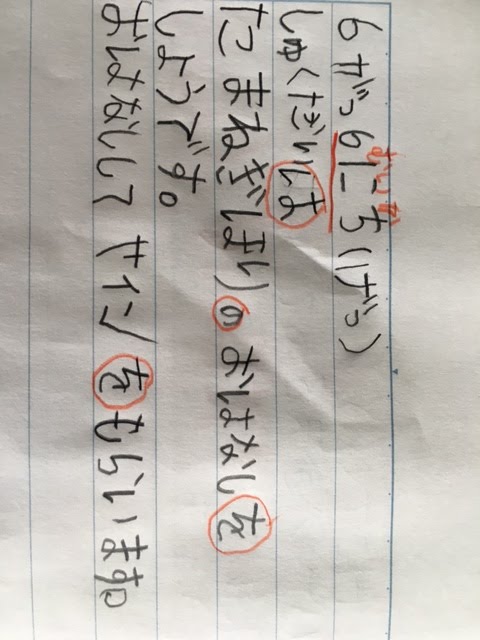 むいか
6がつ6にち(げつ)
しゅくだいは
たまねぎほりの おはなしを
しようです。
おはなしして サインをもらいます。